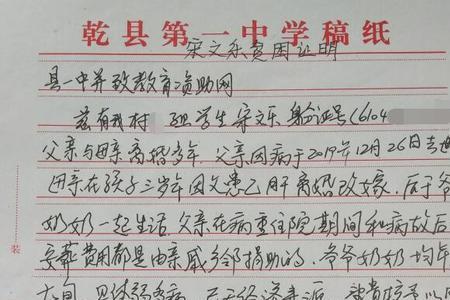 乾县第一中学稿纸
宋文乐贫困证明
县一中并致教育资助网
兹有我村 组学生宋文乐 身份证号(6104
父亲与母亲离婚多年.父亲因病于2019年12月26日去世
母亲在孩子三岁年因父患乙肝离婚改嫁.后于爷
奶奶一起生活.父亲在病重住院期间和病故后
安葬费用都是由亲戚乡邻捐助的.爷爷奶奶均年
六旬
装